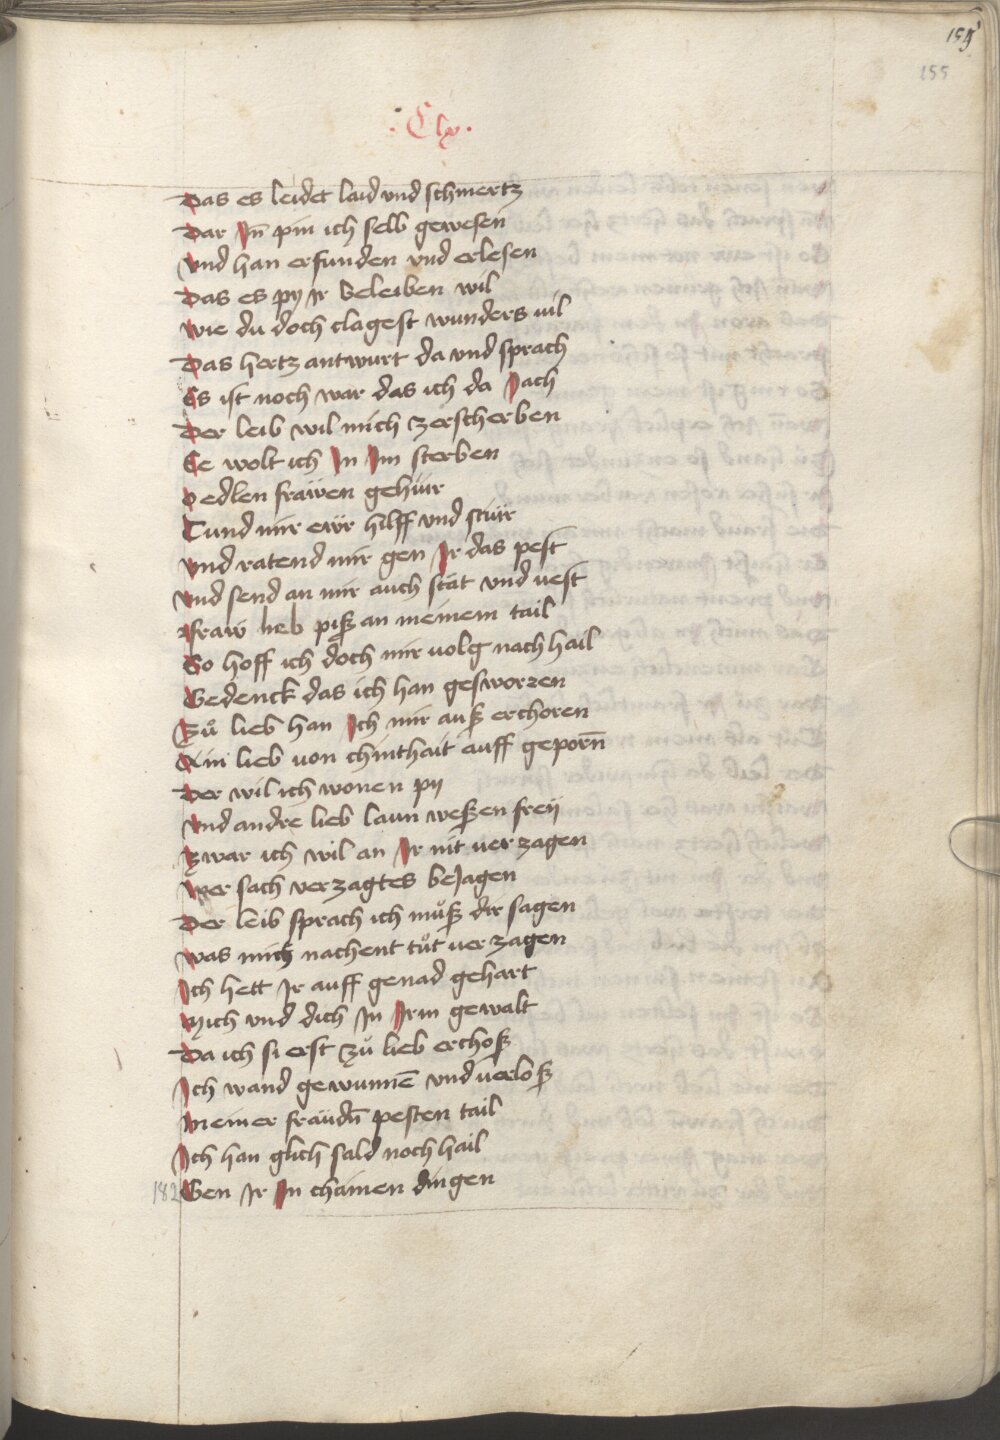 155
155
· Clv ·
Das es leidet laid vnd schmertz
Dar Jn̄ pin ich selb gewesen
Vnd han erfunden vnd erlesen
Das es py ir beleiben wil
Wie du doch clagest wunders uil
Das hertz antwurt da vnd sprach
Es ist noch war das ich da Jach
Der leib wil mich zerscherben
Ee wolt ich Jn Jm sterben
O edlen frawen gehuir
Tund mir ewr hilff vnd stuir
Vnd ratend mir gen Jr das pest
Vnd send an mir auch stat vnd uest
fraw lieb piß an meinem tail
So hoff ich doch mir uolg nach hail
Gedenck das ich han gesworen
Zů lieb han Jch mir auß erchoren
Ain lieb von chinthait auff geporn̄
Der wil ich wonen py
Vnd andre lieb laun weßen frey
Zwar ich wil an Jr nit uerzagen
Wer sach verzagtes beJagen
Der leib sprach ich můß dir sagen
Was mich nachent tůt uerzagen
Jch hett Jr auff genad gehart
Mich vnd dich Jn Jrm gewalt
Da ich si erst zů lieb erchoß
Jch wand gewunnē vnd uerloß
Meiner fräudn̄ pesten tail
Jch han glich sald noch hail
182 Gen Jr Jn chainen dingen